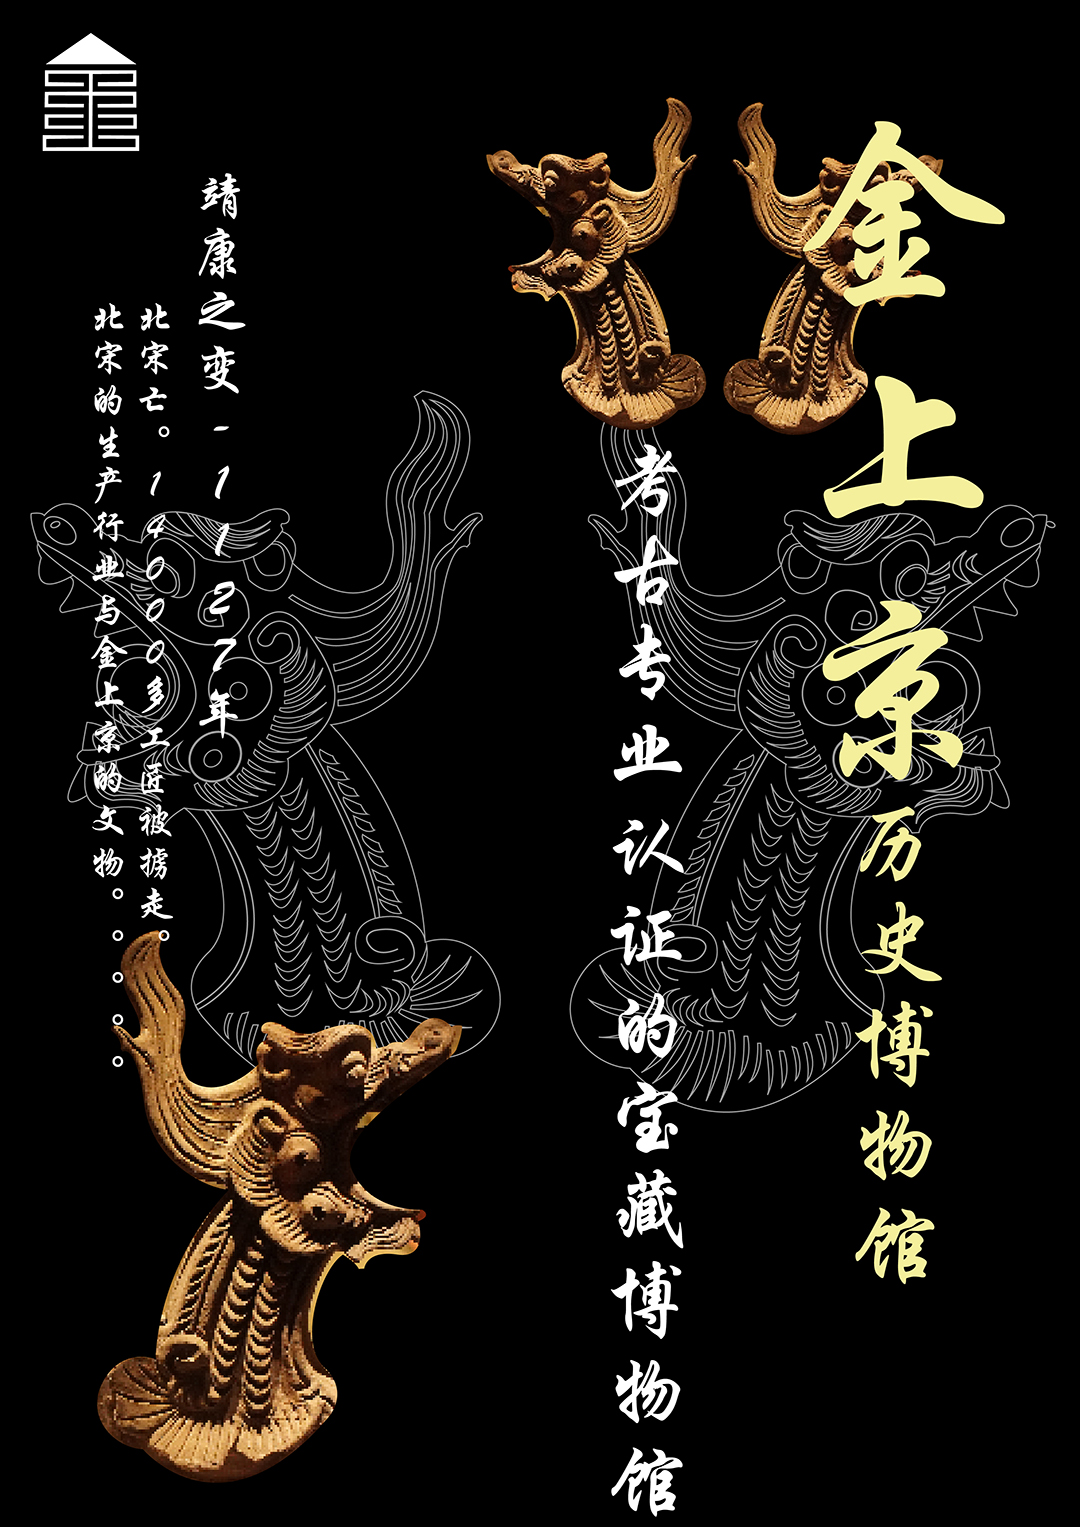 金上京历史博物馆
考古专业认证的宝藏博物馆
靖康之变-1127年
北宋亡。14000多工匠被掳走。
北宋的生产行业与金上京的文物。。。。。